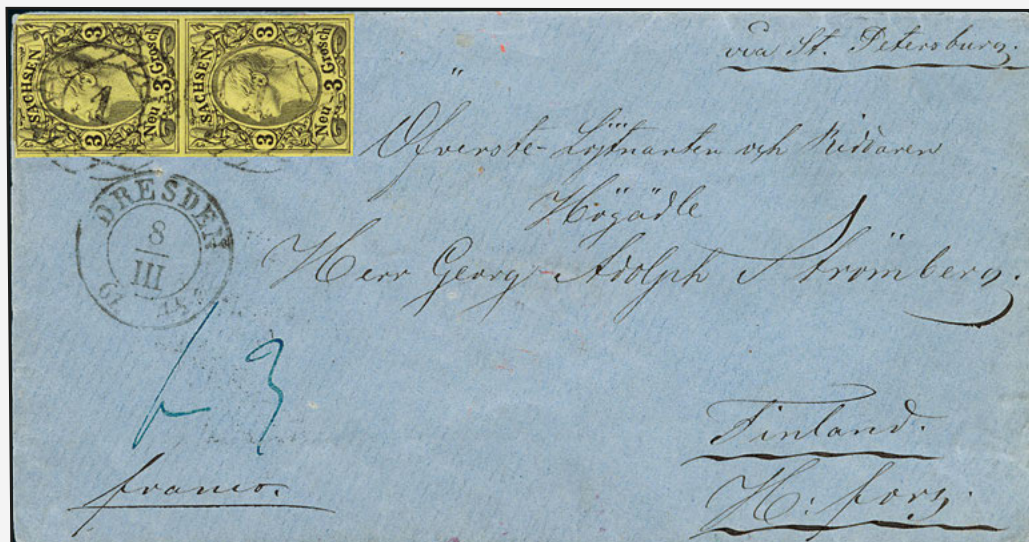 SACHSEN
3
3
Neu 3 Grosch
SACHSEN
3
3
Neu 3 Grosch
1
via St. Petersburg.
Öfverste-Löjtnanten och Riddaren
Högädle
Herr Georg Adolph Strömberg.
DRESDEN
8
III
61
3
franco.
Finland.
H:fors.